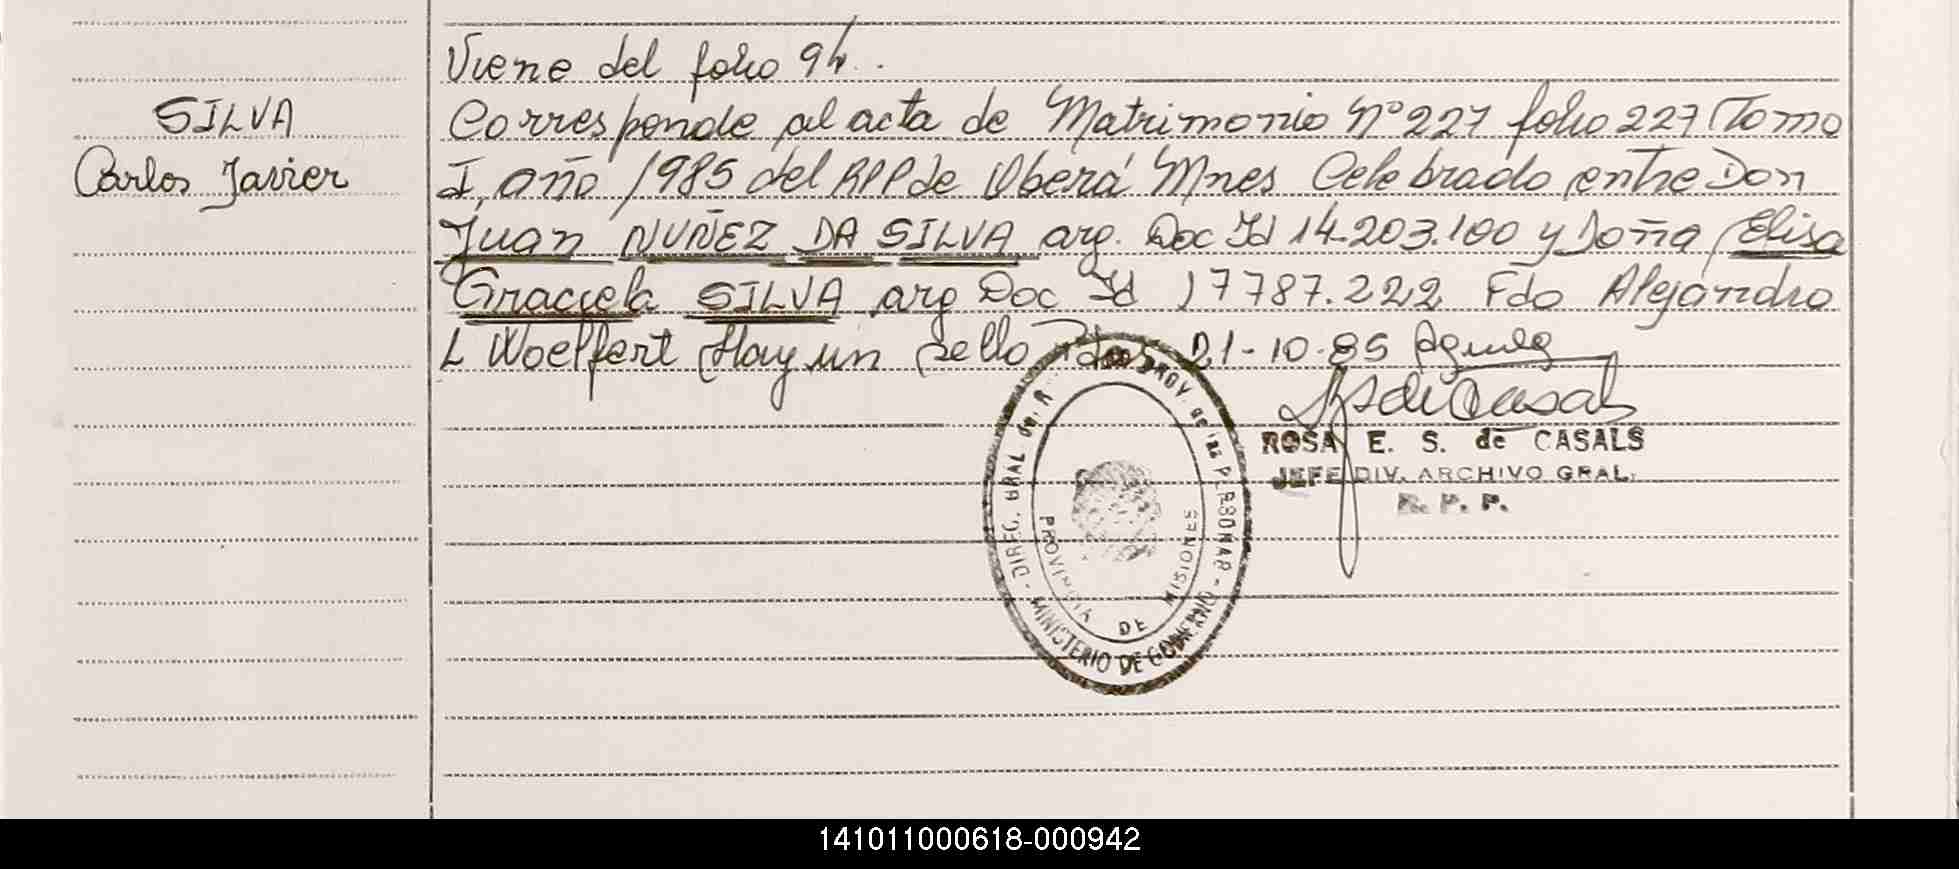 Viene del folio 94.
SILVA
Carlos Javier
Corresponde al acta de Matrimonio Nº 227 folio 227 Tomo
I, año 1985 del RPP de Oberá Mnes Celebrado entre Don
Juan NUÑEZ DA SILVA arg. Doc Id 14.203.100 y Doña Elisa
Graciela SILVA arg Doc Id 17787.222 Fdo Alejandro
L Woelfert Hay un sello Pdas 21-10-85
ROSA E. S. de CASALS
JEFE DIV. ARCHIVO GRAL.
R. P. P.
DIREC. GRAL de. R PROV de las PERSONAS
MINISTERIO DE GOBIERNO
PROVINCIA DE MISIONES
141011000618-000942